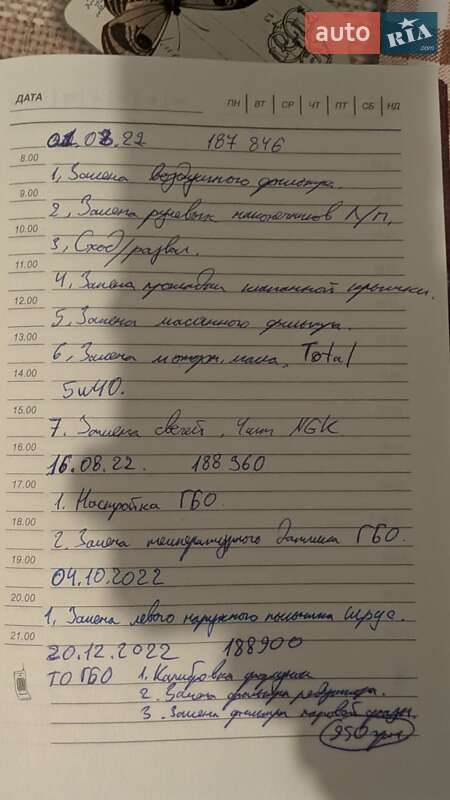 auto RIA .com
ДАТА ПН ВТ СР ЧТ ПТ СБ НД
01.08.22 187 846
8.00
1, Замена воздушного фильтра.
9.00
2, Замена рулевых наконечников Л/П,
10.00
3, Сход/развал.
11.00
4, Замена прокладки клапанной крышки.
12.00
5, Замена масляного фильтра.
13.00
6, Замена моторн. масла, Total
14.00
5w40.
15.00
7. Замена свечей, 4шт NGK
16.00
16.08.22. 188 360
17.00
1. Настройка ГБО.
18.00
2. Замена температурного датчика ГБО.
19.00
04.10.2022
20.00
1, Замена левого наружного пыльника шруса.
21.00
20.12.2022 188900
ТО ГБО 1. Калибровка форсунки
2. Замена фильтра редуктора.
3. Замена фильтра паровой фазы.
950 грн